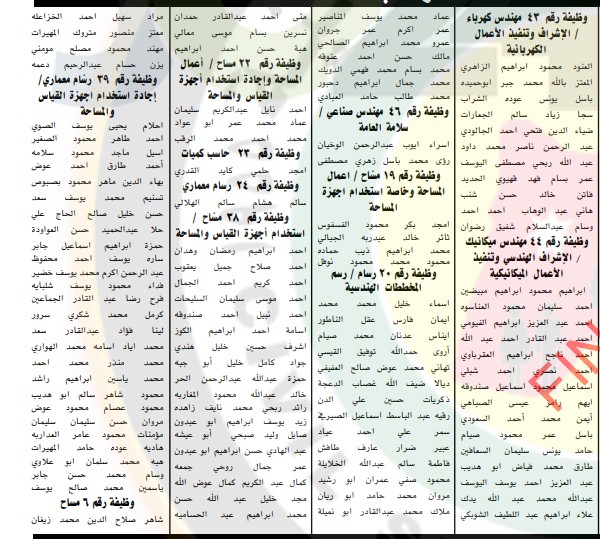 وظيفة رقم ٤٣ مهندس كهرباء
/ الإشراف وتنفيذ الأعمال
الكهربائية
العنود محمود ابراهيم الزاهري
المعتز بالله محمد جبر ابوحميده
باسل يونس عوده الشراب
سجا زياد سالم الجمارات
ضياء الدين فتحي احمد الجالودي
عبد الرحمن ناصر محمد داود
عبد الله ربحي مصطفى اليوسف
عمر بسام فهد قهيوي الحديد
فاتن خالد حسن شنب
هاني عبد الوهاب احمد احمد
وسام عبدالسلام شفيق رضوان
وظيفة رقم ٤٤ مهندس ميكانيك
/ الإشراف الهندسي وتنفيذ
الأعمال الميكانيكية
ابراهيم محمود ابراهيم مبيضين
احمد سليمان محمود العناسوه
احمد عبد العزيز ابراهيم الفيومي
احمد عبد القادر احمد عبد الله
احمد ناجح ابراهيم العقرباوي
احمد نصري احمد شبلي
اسماعيل محمود اسماعيل صندوقه
ايهم رامز عيسى الصباهي
أيمن محمد أحمد السعودي
باسل عمر محمود صيام
حامد يونس سليمان السعافين
طارق محمد فياض ابو هديب
عبد العزيز احمد يوسف اليوسف
عبدالله محمد عبد الله يدك
علاء ابراهيم عبد اللطيف الشويكي
عماد محمد يوسف المناصير
عمر اكرم عمر جروان
عمرو محمد ابراهيم الصالحي
مالك حسن احمد عتوقه
محمد بسام محمد فهمي الدويك
محمد جمال ابراهيم دحبور
محمد طالب حامد العبادي
وظيفة رقم ٤٦ مهندس صناعي /
سلامة العامة
اسراء ايوب عبدالرحمن الوخيان
رؤى محمد باسل زهري مصطفى
وظيفة رقم ١٩ مساح / اعمال
المساحة وخاصة استخدام اجهزة
المساحة
امجد بكر محمود الفسفوس
ثائر خالد عبدربه الجيالي
محمد ابراهيم ذيب حماده
محمود محمد محمود نوفل
وظيفة رقم ٢٠ رسام / رسم
المخططات الهندسية
اسماء خليل محمد محمد
ايمان فارس عقل الناطور
ايناس عدنان محمد صيام
أروى حمدالله توفيق القيسي
تهاني محمد عوض صالح العفيفي
ديالا ضيف الله غصاب الدعجة
ذكريات حسين علي الدن
رقيه عبد الباسط اسماعيل الصيرفي
سمر علي احمد عباد
عبير ضرار عارف طافش
فاطمة سالم عبدالله الخلايلة
محمود صفي عمران ابو رشيد
مروان محمد حامد ابو ريان
ملاك محمد عبدالقادر ابو نميلة
منى احمد عبدالقادر حمدان
نسرين بسام موسى معالي
هبة حسن احمد ابراهيم
وظيفة رقم ٢٢ مساح / أعمال
المساحة وإجادة استخدام أجهزة
القياس والمساحة
احمد نايل عبدالكريم سليمان
عماد محمد عمر ابو عواد
محمد احمد محمد الرقب
وظيفة رقم ٢٣ حاسب كميات
امجد حلمي كايد القدري
وظيفة رقم ٢٤ رسام معماري
سالم هشام سالم الهلالي
وظيفة رقم ٣٨ مساح /
استخدام أجهزة القياس والمساحة
احمد ابراهيم رمضان وهدان
احمد صلاح جميل يعقوب
احمد كريم احمد الجمال
احمد موسى سليمان السليحات
احمد نبيل احمد صندوقه
اسامة احمد ابراهيم الكوز
اشرف حسين خليل هندي
جواد كامل خليل أبو جبه
حمزة عبدالله عبدالرحمن الحر
خالد عبدالله محمود المغاربه
رائد ربحي محمد نايف زاهده
زيد يوسف ابراهيم أبو عبدون
صايل وليد صبحي أبو عيشه
عبد الهادي حسن ابراهيم ابو عبدون
عمر جمال روحي جمعه
كمال عبد الكريم كمال عوض الله
مجد خليل عبد الله حسن
محمد ابراهيم عبد الحساميه
مراد سهيل احمد الخزاعله
معتز منصور متروك المهيرات
مهند محمود مصلح مومني
يزن حسام عبدالرحيم دعمه
وظيفة رقم ٣٩ رسام معماري/
إجادة استخدام اجهزة القياس
والمساحة
احلام يحيى يوسف الصوي
احمد طاهر محمود الصغير
اسيل ماجد محمود سلامه
أحمد طارق احمد عوض
بهاء الدين ماهر محمود بصبوص
تسنيم محمد يوسف سعد
حسن خليل صالح الحاج علي
حلا عبدالحميد حسن العواودة
حمزة ابراهيم اسماعيل جابر
ساره يوسف احمد محفوظ
عبد الرحمن اكرم محمد يوسف خضير
فداء محمود يوسف شلبايه
فرح رضا عبد القادر الجماعين
كرمل محمد شكري سرور
لينا فؤاد عبدالقادر سعد
محمد اياد اسامه محمد الهواري
محمد منذر محمد احمد
محمد ياسين ابراهيم راشد
محمود شاهر سالم ابو هديب
محمود عصام محمود عوض
مروان حسن سليمان سليمان
مؤمنات محمود عامر العداربه
هاديه عوده حامد المهيرات
هبه محمد سلمان ابو علاوي
وسام محمد حسن جابر
ياسمين محمد صالح يوسف
وظيفة رقم ٦ مساح
شاهر صلاح الدين محمد زيغان